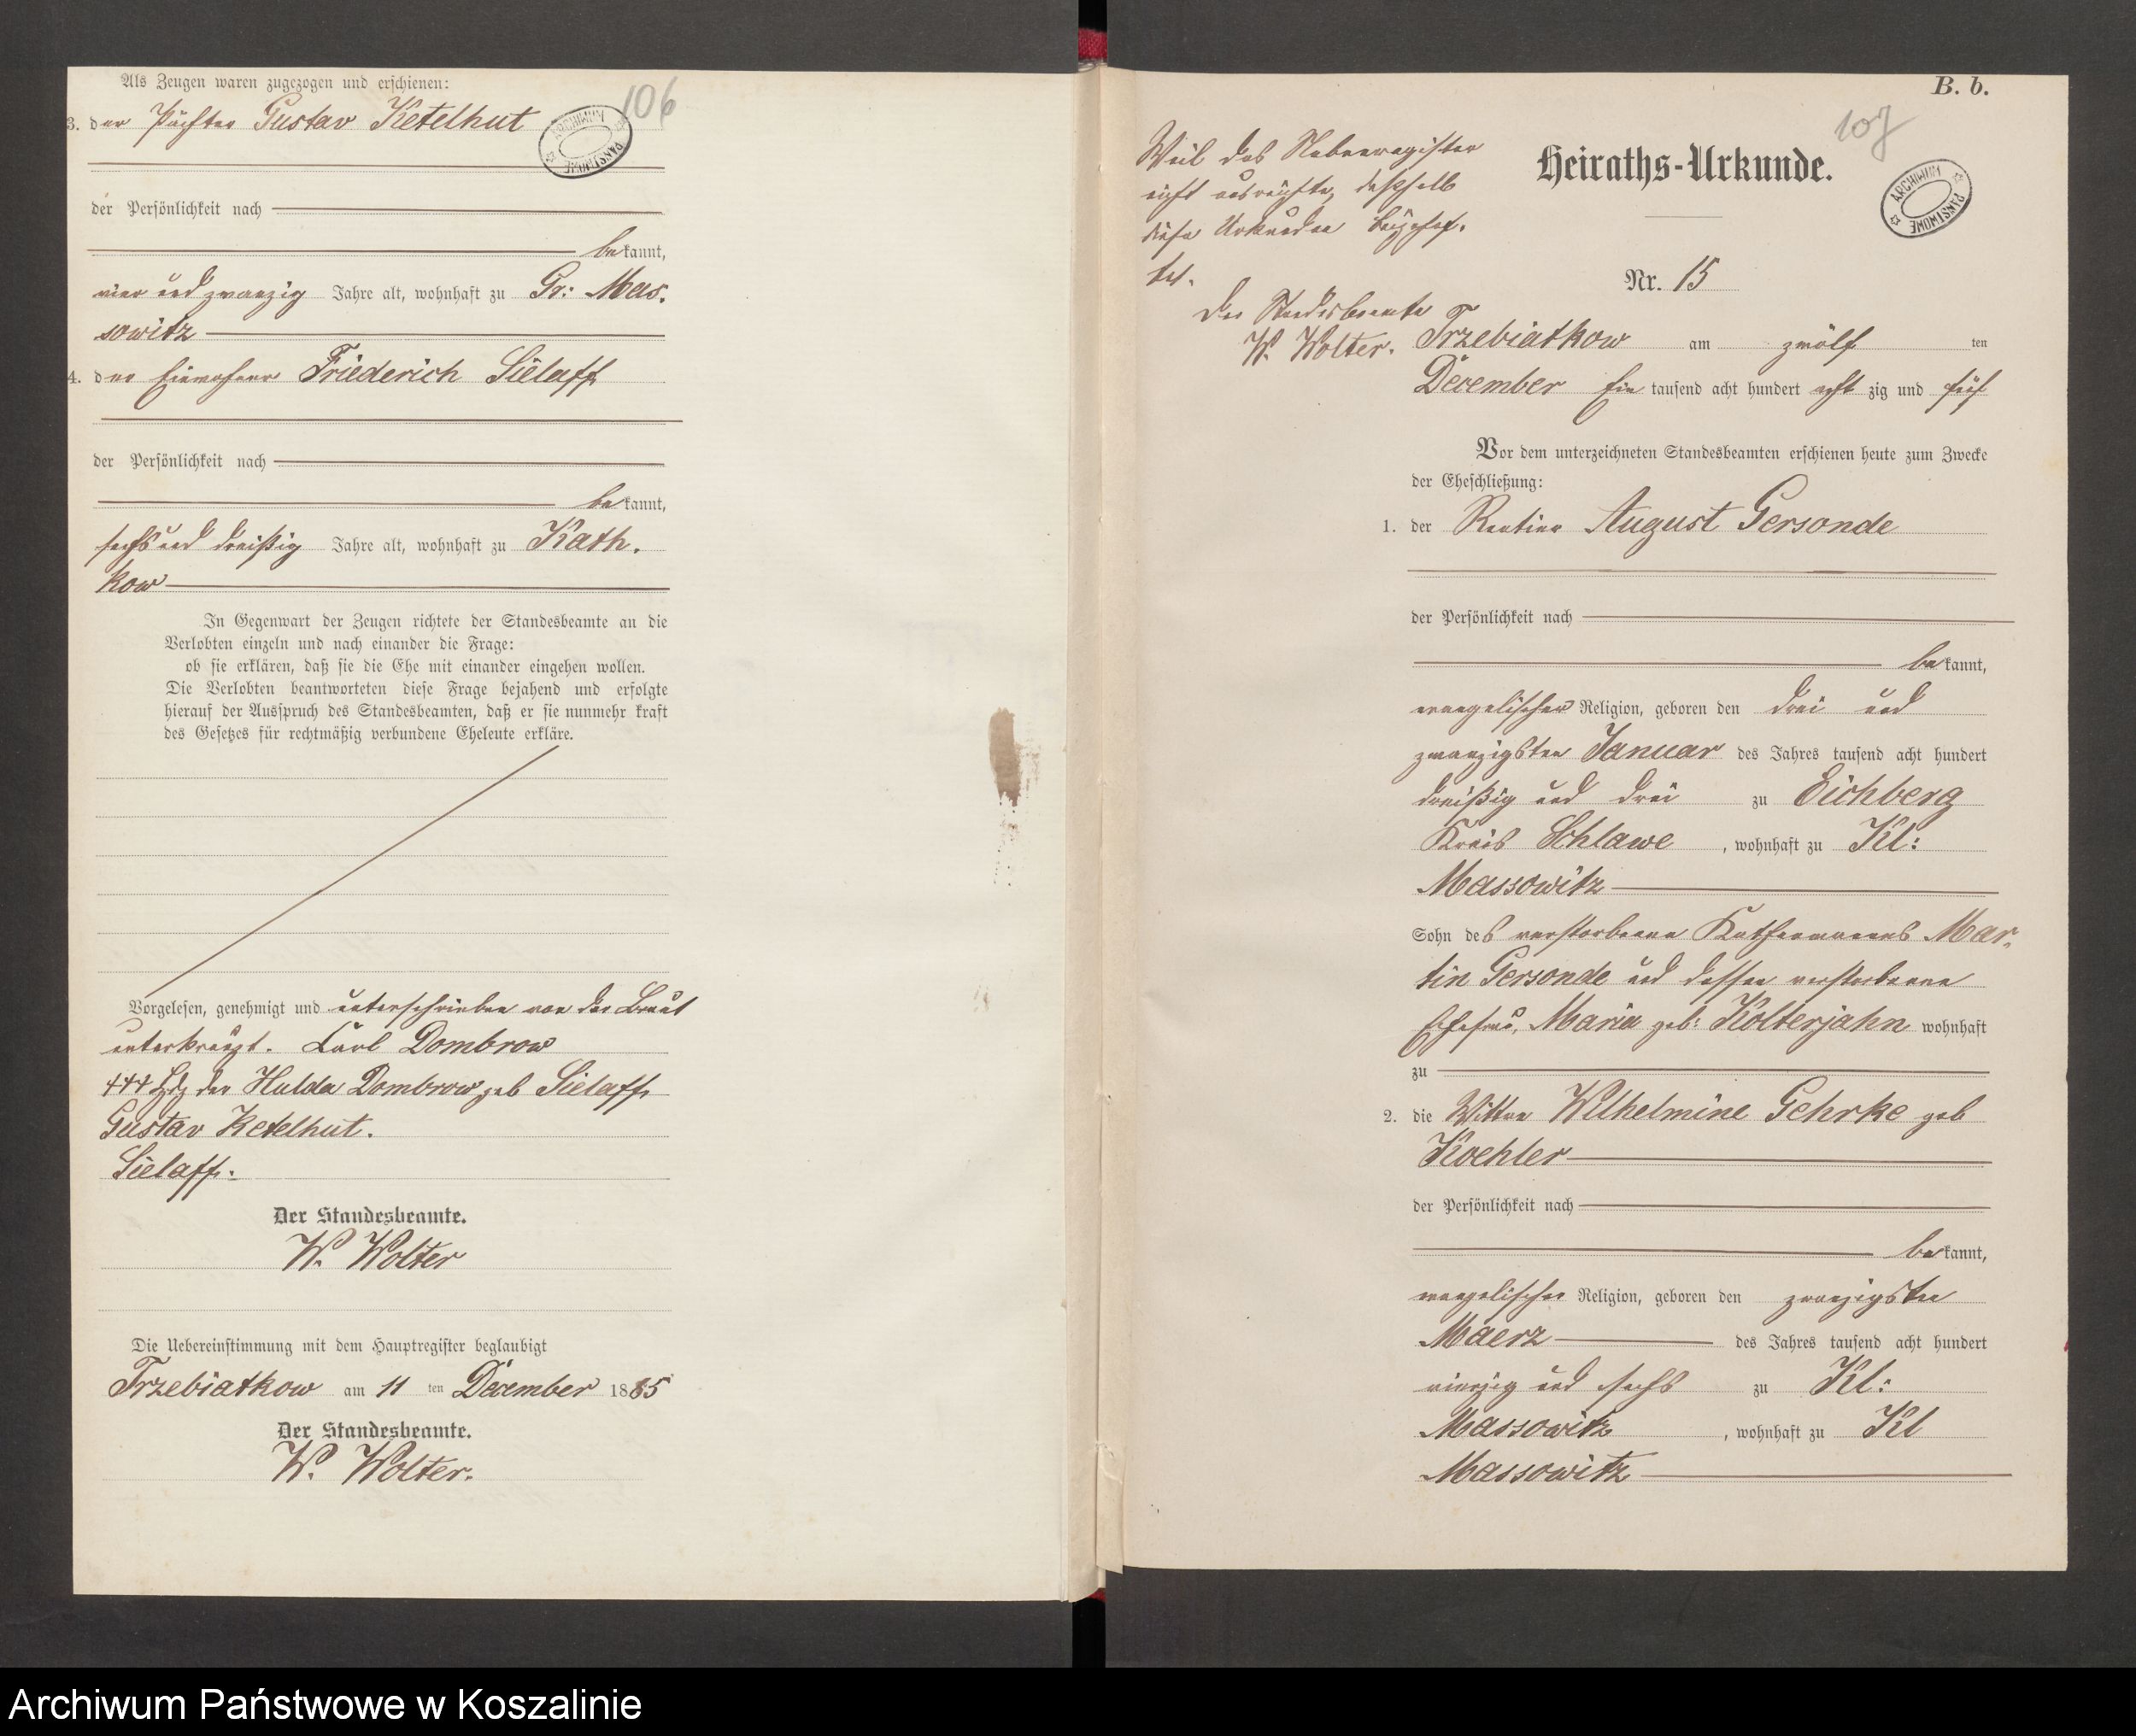 Als Zeugen waren zugezogen und erschienen:
106
3. der Pächter Gustav Ketelhut
ARCHIWUM PAŃSTWOWE
der Persönlichkeit nach
bekannt,
vier und zwanzig Jahre alt, wohnhaft zu Gr: Mas-
sowitz
4. der Einwohner Friederich Sielaff
der Persönlichkeit nach
bekannt,
sechs und dreißig Jahre alt, wohnhaft zu Kath-
kow
In Gegenwart der Zeugen richtete der Standesbeamte an die
Verlobten einzeln und nach einander die Frage:
ob sie erklären, daß sie die Ehe mit einander eingehen wollen.
Die Verlobten beantworteten diese Frage bejahend und erfolgte
hierauf der Ausspruch des Standesbeamten, daß er sie nunmehr kraft
des Gesetzes für rechtmäßig verbundene Eheleute erkläre.
Vorgelesen, genehmigt und unterschrieben von der Braut
unterkreuzt. Carl Dombrow
+++ Hdz der Hulda Dombrow geb Sielaff
Gustav Ketelhut.
Sielaff.
Der Standesbeamte.
W. Wolter
Die Uebereinstimmung mit dem Hauptregister beglaubigt
Trzebiatkow am 11 ten December 1885
Der Standesbeamte.
W. Wolter.
B. b.
107
Heiraths-Urkunde.
ARCHIWUM PAŃSTWOWE
Weil das Nebenregister
nicht ausreichte, deßhalb
diese Urkunden beigehef-
tet.
Der Standesbeamte
W. Wolter.
Nr. 15
Trzebiatkow am zwölf ten
December Ein tausend acht hundert acht zig und fünf
Vor dem unterzeichneten Standesbeamten erschienen heute zum Zwecke
der Eheschließung:
1. der Rentier August Gersonde
der Persönlichkeit nach
bekannt,
evangelischer Religion, geboren den drei und
zwanzigsten Januar des Jahres tausend acht hundert
dreißig und drei zu Eichberg
Kreis Schlawe, wohnhaft zu Kl:
Massowitz
Sohn des verstorbenen Kathenmanns Mar-
tin Gersonde und dessen verstorbenen
Ehefrau, Maria geb: Kolterjahn wohnhaft
zu
2. die Wittwe Wilhelmine Gehrke geb
Koehler
der Persönlichkeit nach
bekannt,
evangelischer Religion, geboren den zwanzigsten
Maerz des Jahres tausend acht hundert
vierzig und sechs zu Kl:
Massowitz, wohnhaft zu Kl
Massowitz
Archiwum Państwowe w Koszalinie